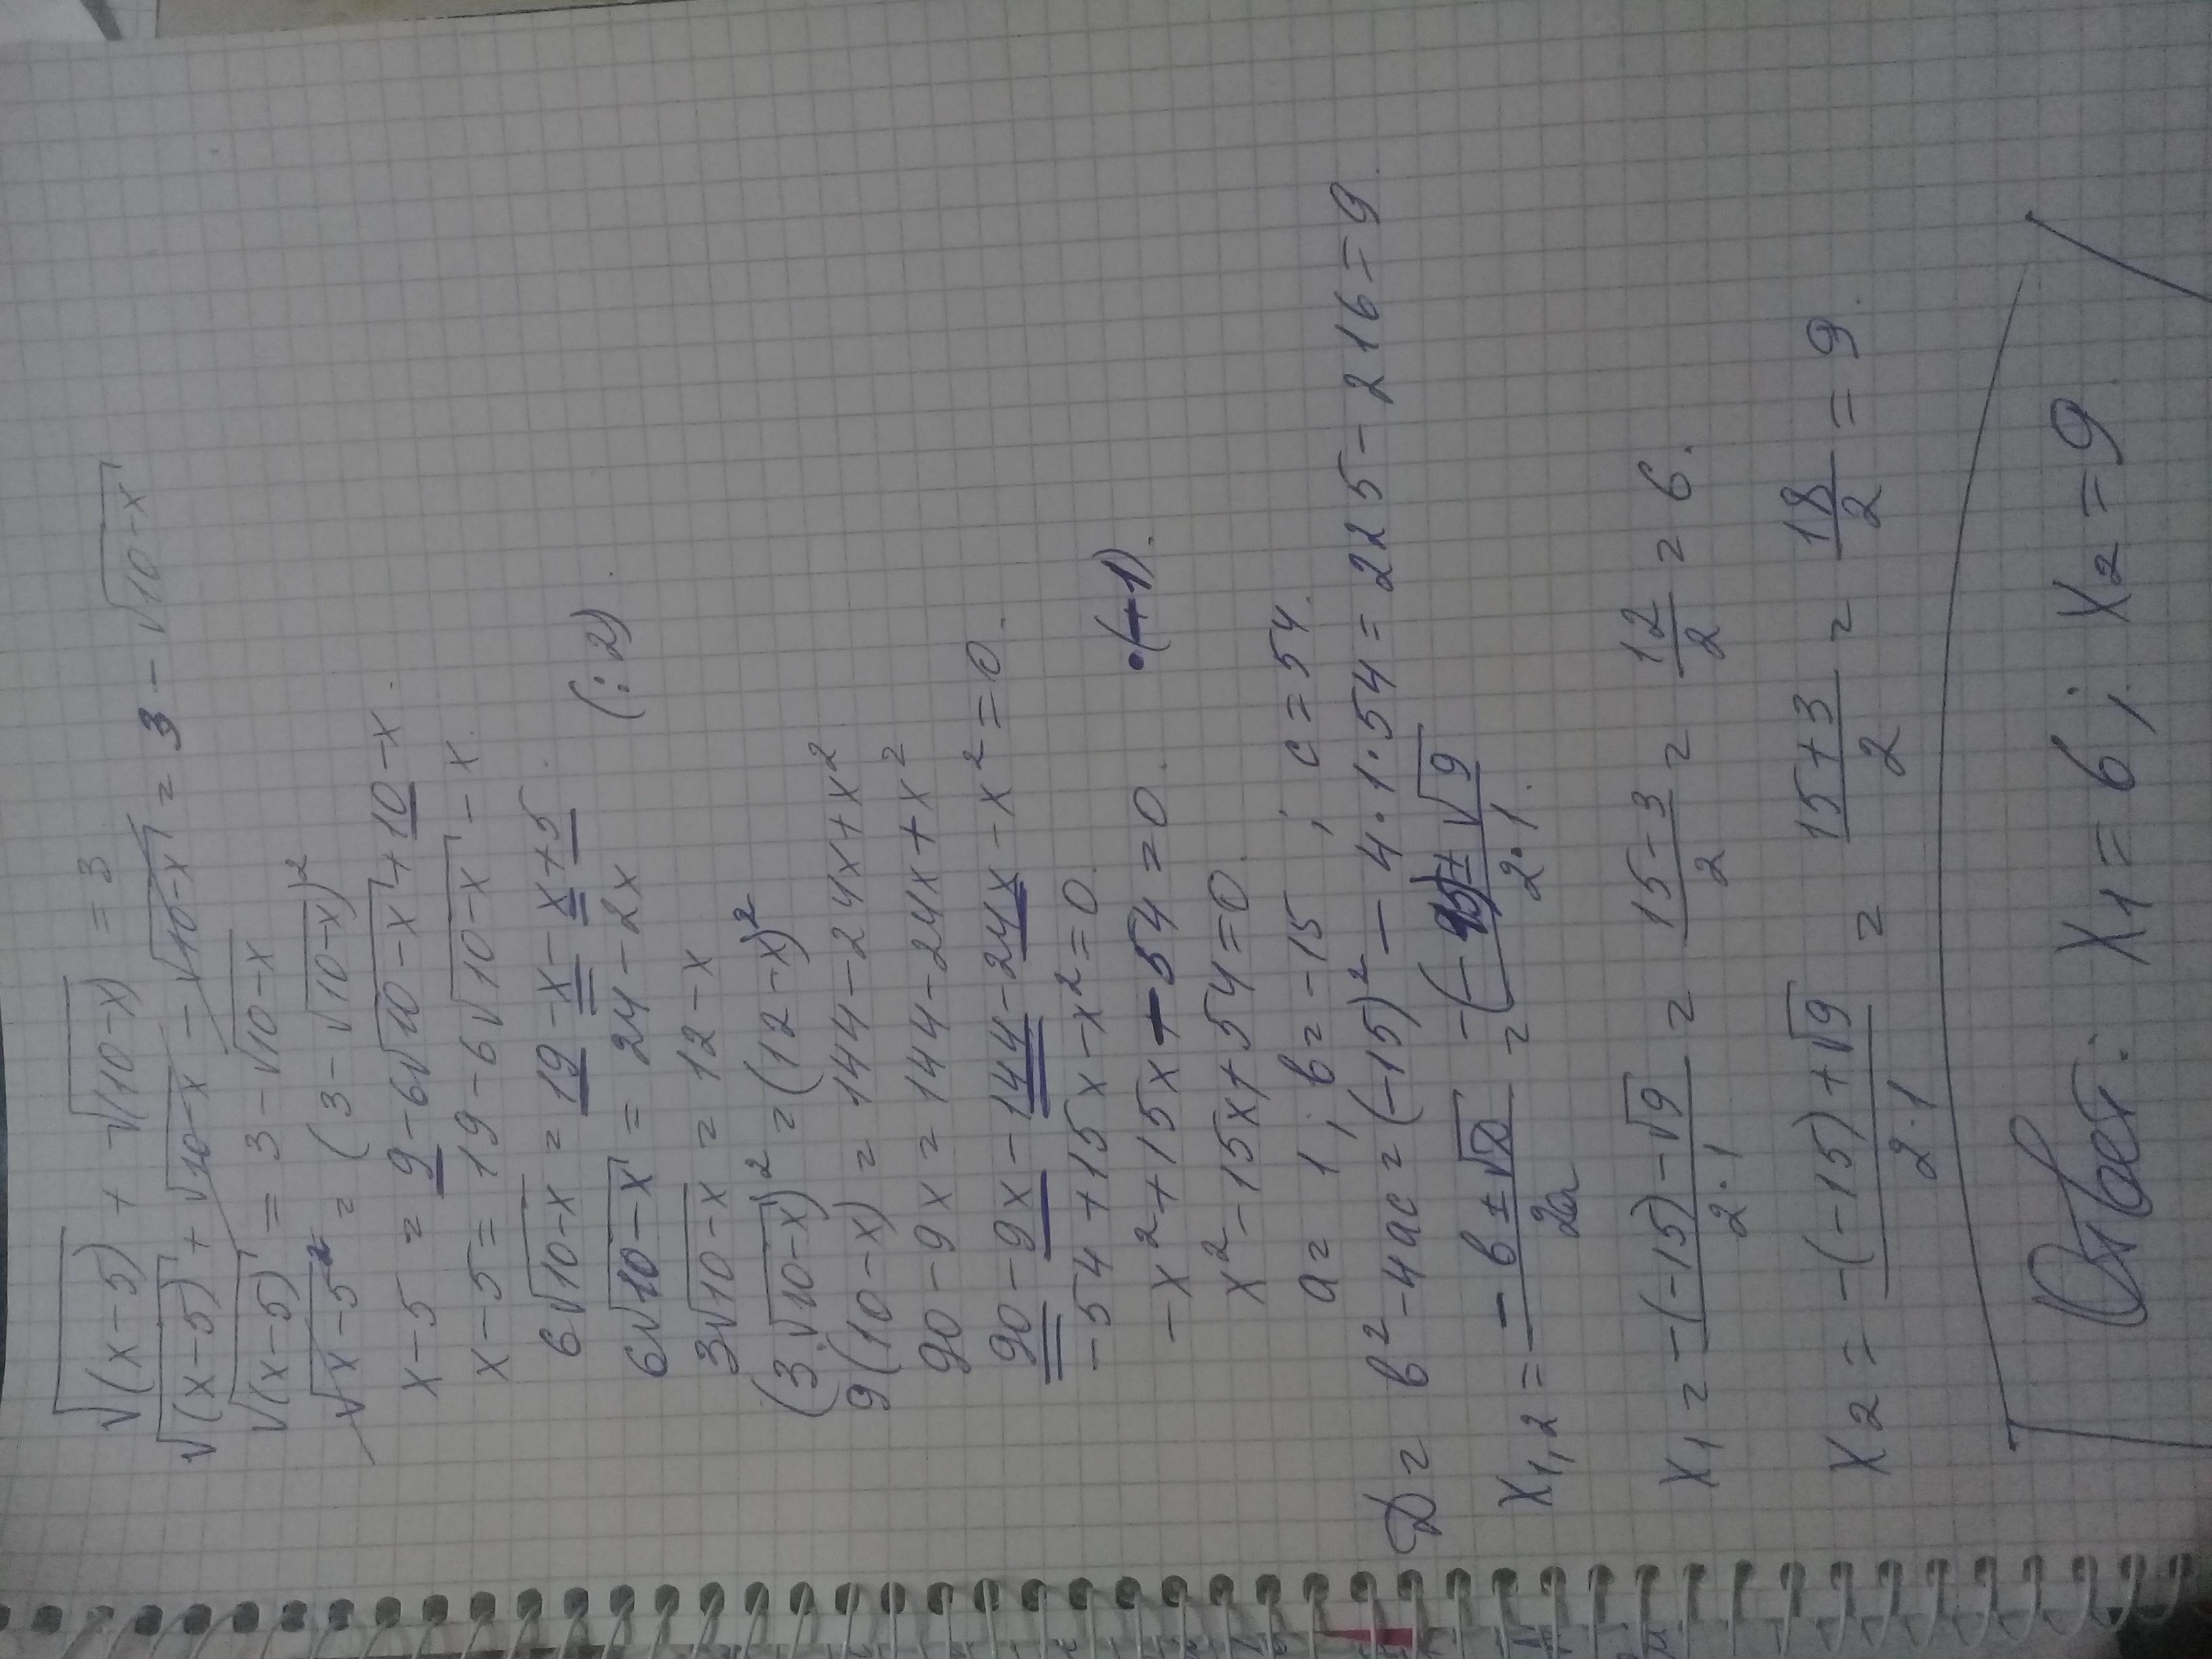 √(x-5) + √(10-x) = 3
√(x-5) + √10-x - √10-x = 3 - √10-x
√(x-5) = 3 - √10-x
√x-5² = (3 - √10-x)²
x-5 = 9 - 6√10-x + 10 - x.
x-5 = 19 - 6√10-x - x.
6√10-x = 19 - x - x + 5.
6√10-x = 24 - 2x (:2).
3√10-x = 12 - x
(3√10-x)² = (12-x)²
9(10-x) = 144 - 24x + x²
90 - 9x = 144 - 24x + x²
90 - 9x - 144 - 24x - x² = 0.
-54 + 15x - x² = 0.
-x² + 15x - 54 = 0. ·(-1).
x² - 15x + 54 = 0.
a = 1; b = -15; c = 54.
D = b² - 4ac = (-15)² - 4·1·54 = 225 - 216 = 9.
x1,2 = -b ± √D / 2a = -(-15) ± √9 / 2·1.
x1 = -(-15) - √9 / 2·1 = 15-3 / 2 = 12 / 2 = 6.
x2 = -(-15) + √9 / 2·1 = 15+3 / 2 = 18 / 2 = 9.
Ответ: x1 = 6; x2 = 9.